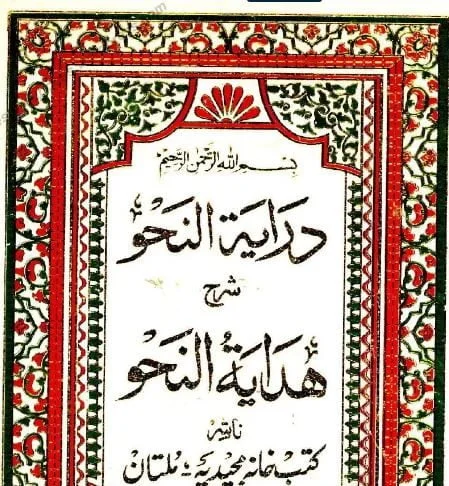 بسم الله الرحمن الرحيم
دراية النحو
شرح
هداية النحو
ناشر
كتب خانه مجيديه؛ ملتان